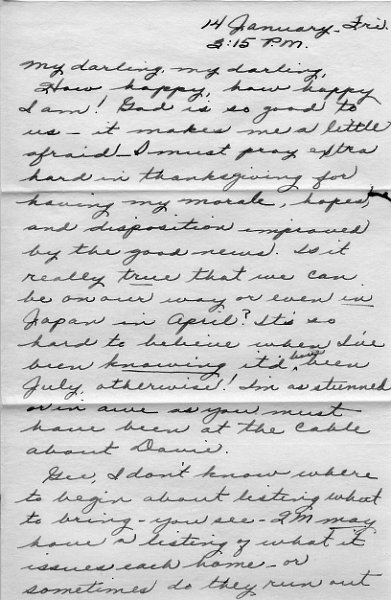 14 January - Fri.
3:15 P.M.
My darling, my darling,
How happy, how happy
I am! God is so good to
us - it makes me a little
afraid - I must pray extra
hard in thanksgiving for
having my morale, hopes,
and disposition improved
by the good news. Is it
really true that we can
be on our way or even in
Japan in April? It's so
hard to believe when I've
been knowing it'd have been
July, otherwise! I'm as stunned
or in awe as you must
have been at the cable
about Davie.
Gee, I don't know where
to begin about listing what
to bring - you see - QM may
have a listing of what it
issues each home - or
sometimes do they run out